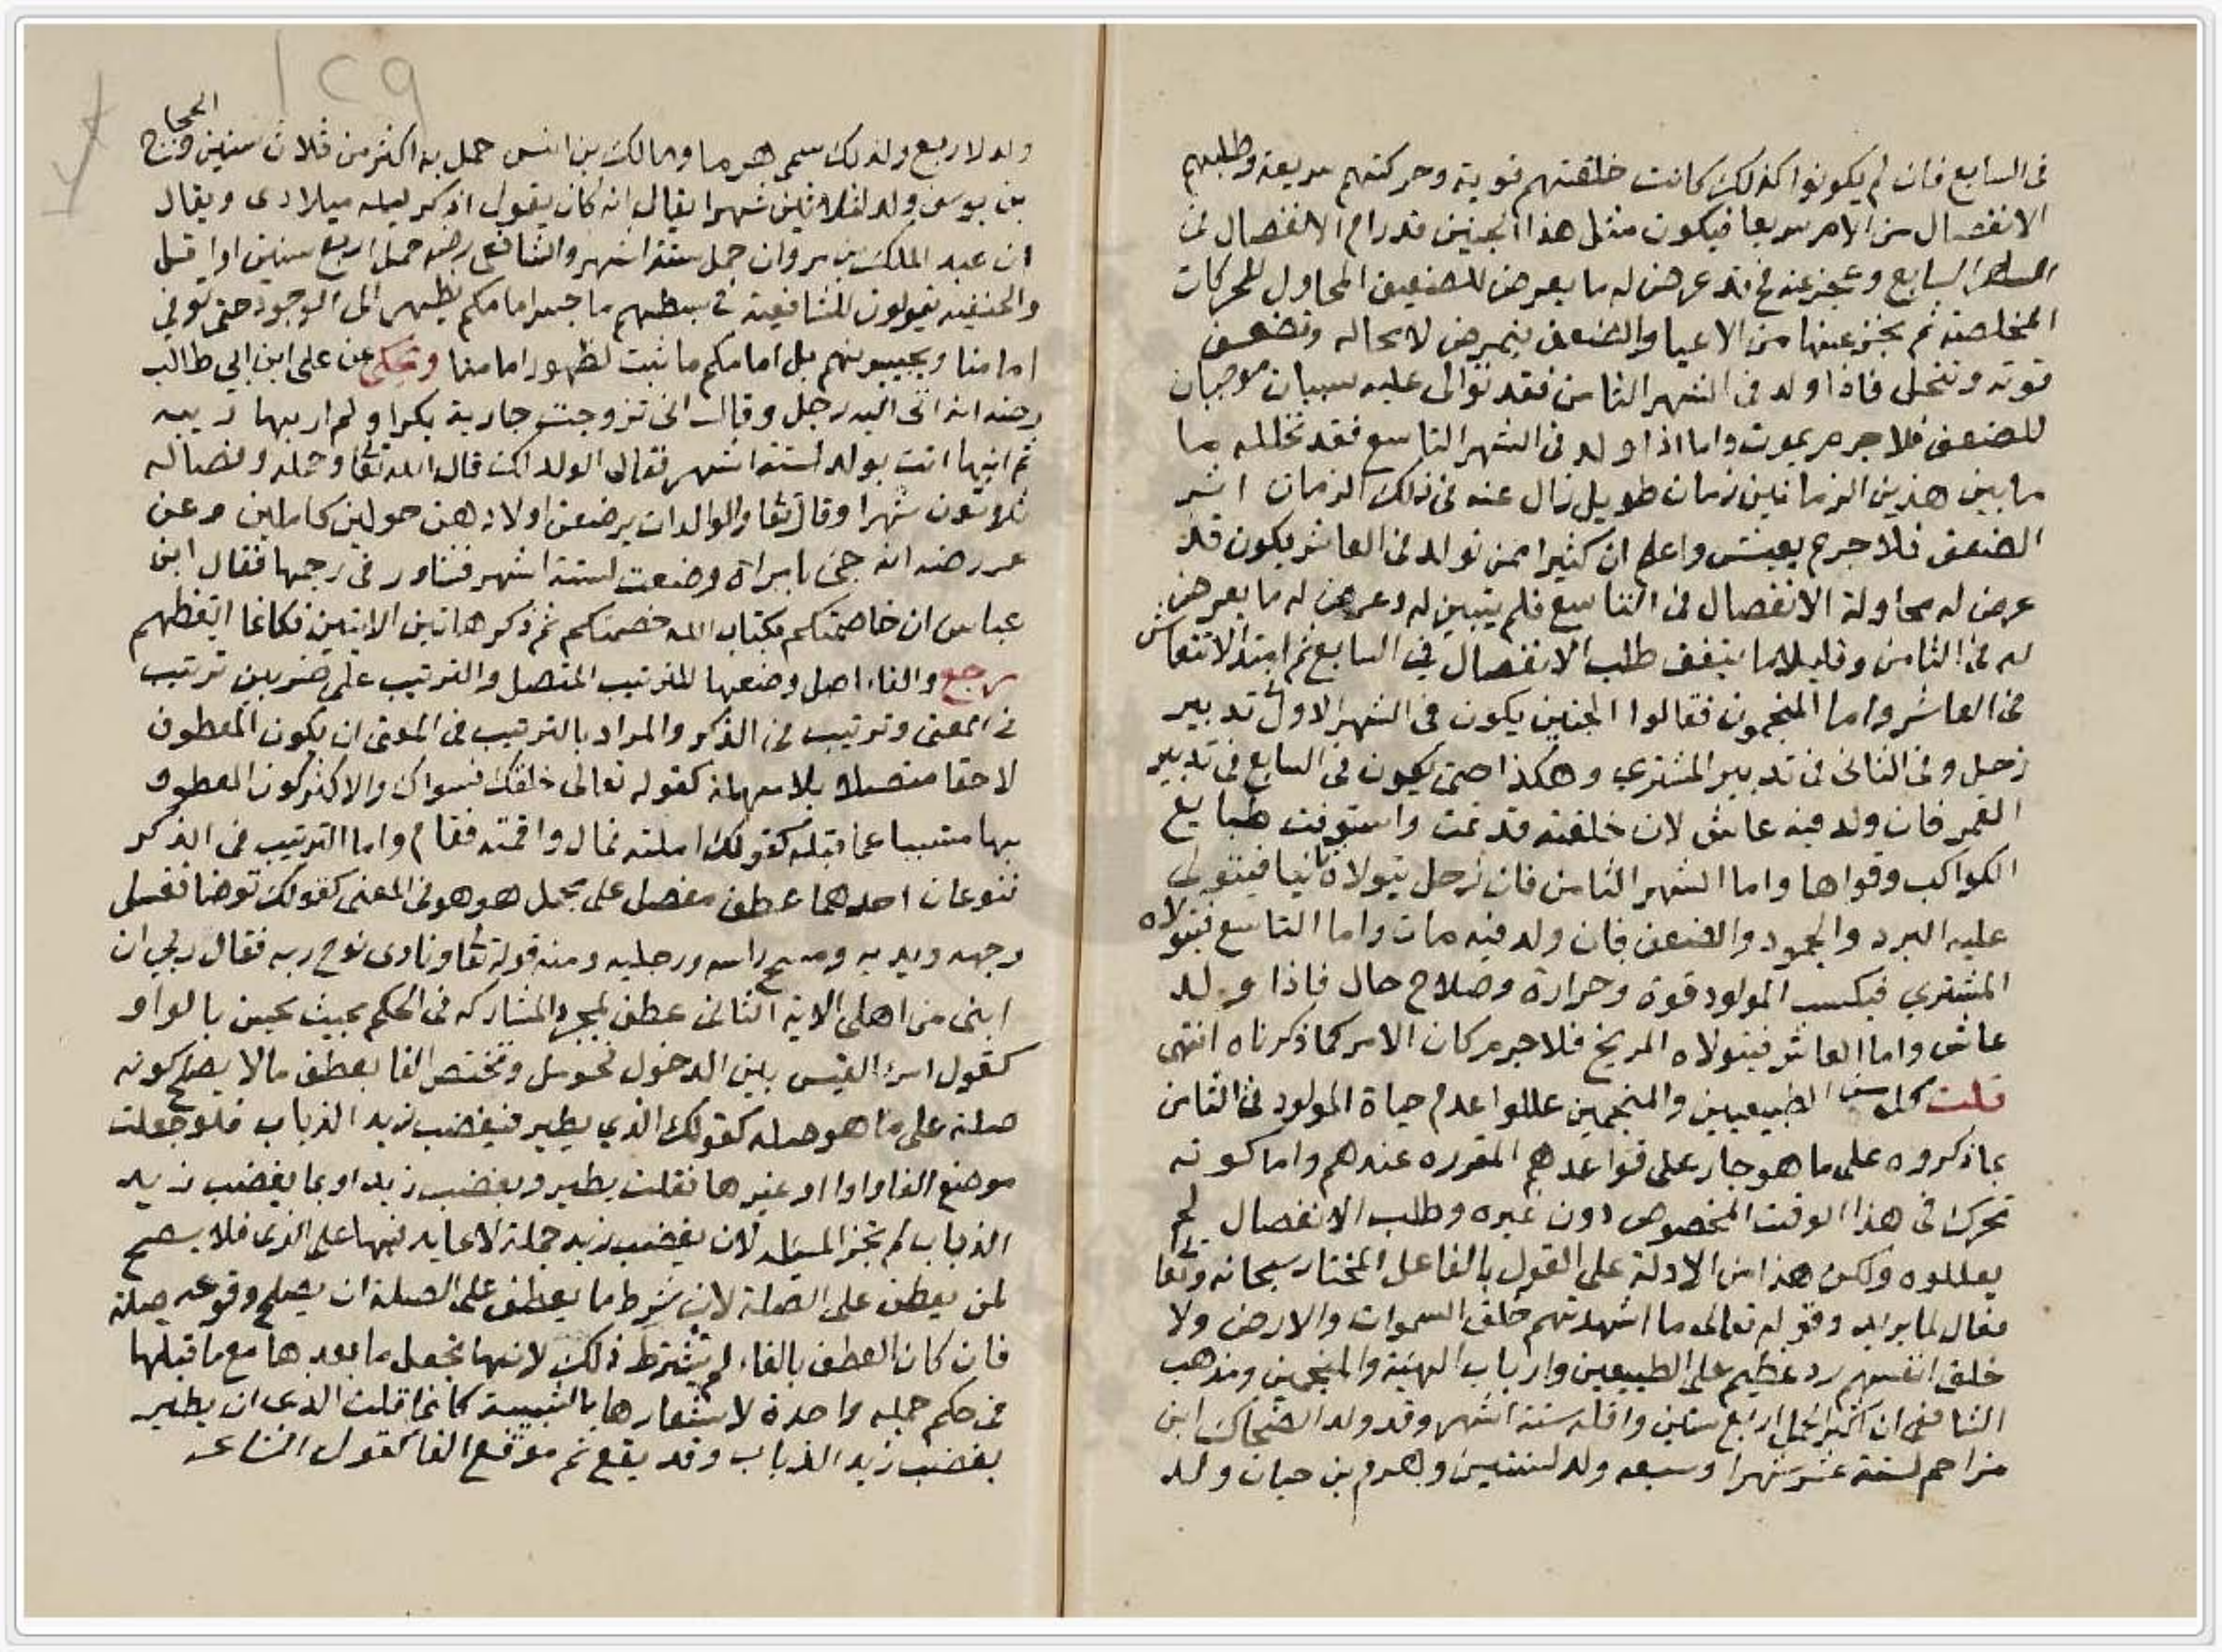 فى السابع فان لم يكونوا كذلك كانت خلقتهم قوية وحركتهم سريعة وطلبهم
الانفصال من الامر سريعا فيكون مثل هذا الجنين قد رام الانفصال فى
السابع وعجز عنه فح قد عرض له ما يعرض للضعيف المحاول للحركات
المخلصة ثم يعجز عنها من الاعيا والضعف يتمرض لا محاله وتضعف
قوته وتنحل فاذا ولد فى الشهر الثامن فقد توالى عليه سببان موجبان
للضعف فلا جرم يموت واما اذا ولد فى الشهر التاسع فقد تخلله ما
ما بين هذين الزمانين زمان طويل زال عنه فى ذلك الزمان اثر
الضعف فلا جرم يعيش واعلم ان كثيرا ممن تولد فى العاشر يكون قد
عرض له محاولة الانفصال فى التاسع فلم يتبين له وعرض له ما يعرض
له فى الثامن وقليلا ما يتفق طلب الانفصال فى السابع ثم ابتدا الانتعاش
فى العاشر واما المنجمون فقالوا الجنين يكون فى الشهر الاول فى تدبير
زحل وفى الثانى فى تدبير المشترى وهكذا حتى يكون فى السابع فى تدبير
القمر فان ولد فيه عاش لان خلقته قد تمت واستوفت طبايع
الكواكب وقواها واما الشهر الثامن فان زحل يتولاه ثانيا فيتولى
عليه البرد والجمود والضعف فان ولد فيه مات واما التاسع فيتولاه
المشتري فيكسب المولود قوة وحرارة وصلاح حال فاذا ولد
عاش واما العاشر فيتولاه المريخ فلا جرم كان الامر كما ذكرناه انتهى
قلت كل من الطبيعيين والمنجمين عللوا عدم حياة المولود فى الثامن
بما ذكروه على ما هو جار على قواعدهم المقرره عندهم واما كونه
تحرك فى هذا الوقت المخصوص دون غيره وطلب الانفصال لم
يعللوه ولكن هذا من الادلة على القول بالفاعل المختار سبحانه وتعا
فعال لما يريد وقوله تعالى ما اشهدتهم خلق السموات والارض ولا
خلق انفسهم رد عظيم على الطبيعين وارباب الهيئة والمنجمين ومذهب
الشافعى ان اكثر الحمل اربع سنين واقله ستة اشهر وقد ولد الضحاك ابن
مزاحم لستة عشر شهرا وسبعه ولد لسنتين وهرم بن حيان ولد
ولد لاربع ولذلك سمى هرما ومالك بن انس حمل به اكثر من ثلاث سنين والحجاج
بن يوسف ولد لثلاثين شهرا يقال انه كان يقول اذكر ليلة ميلادى ويقال
ان عبد الملك بن مروان حمل ستة اشهر والشافعى رضه حمل اربع سنين او اقل
والحنفيه يقولون للشافعية فى بسطهم ما جسر امامكم يظهر الى الوجود حتى توفى
امامنا ويجيبونهم بل امامكم ما ثبت لظهور امامنا وحكى عن على ابن ابى طالب
رضه انه اتى اليه رجل وقال انى تزوجت جارية بكرا ولم ار بها ريبه
ثم انها اتت بولد لستة اشهر فقال الولد لك قال الله تعا وحمله وفصاله
ثلاثون شهرا وقال تعا والوالدات يرضعن اولادهن حولين كاملين وعن
عمر رضه انه جئ بامراة وضعت لستة اشهر فشاور فى رجمها فقال ابن
عباس ان خاصمتكم بكتاب الله خصمتكم ثم ذكر هاتين الايتين فكانما ايقظهم
رجع والفاء اصل وضعها للترتيب المتصل والترتيب على ضربين ترتيب
فى المعنى وترتيب فى الذكر والمراد بالترتيب فى المعنى ان يكون المعطوف
لاحقا متصلا بلا مهملة كقوله تعالى خلقك فسواك والاكثر كون المعطوف
بها متسببا عما قبله كقولك املته فمال واقمته فقام واما الترتيب فى الذكر
فنوعان احدهما عطف مفصل على مجمل هو هو فى المعنى كقولك توضا فغسل
وجهه ويديه ومسح راسه ورجليه ومنه قوله تعا ونادى نوح ربه فقال رب ان
ابنى من اهلى الاية الثانى عطف لمجرد المشاركه فى الحكم بحيث يحسن بالواو
كقول امرء القيس بين الدخول فحومل وتختص الفا بعطف ما لا يصلح كونه
صلة على ما هو صله كقولك الذي يطير فيغضب زيد الذباب فلو جعلت
موضع الفا واوا او غيرها فقلت يطير ويغضب زيد او بما يغضب زيد
الذباب لم تجز المسئله لان يغضب زيد جملة لا عايد فيها على الذى فلا يصح
لمن يعطف على الصلة لان شرط ما يعطف على الصلة ان يصلح وقوعه صلة
فان كان العطف بالفاء لم يشترط ذلك لانها تجعل ما بعدها مع ما قبلها
فى حكم جمله واحدة لاشعارها بالسببية كانما قلت الذى ان يطير
يغضب زيد الذباب وقد يقع ثم موقع الفا كقول الشاعر